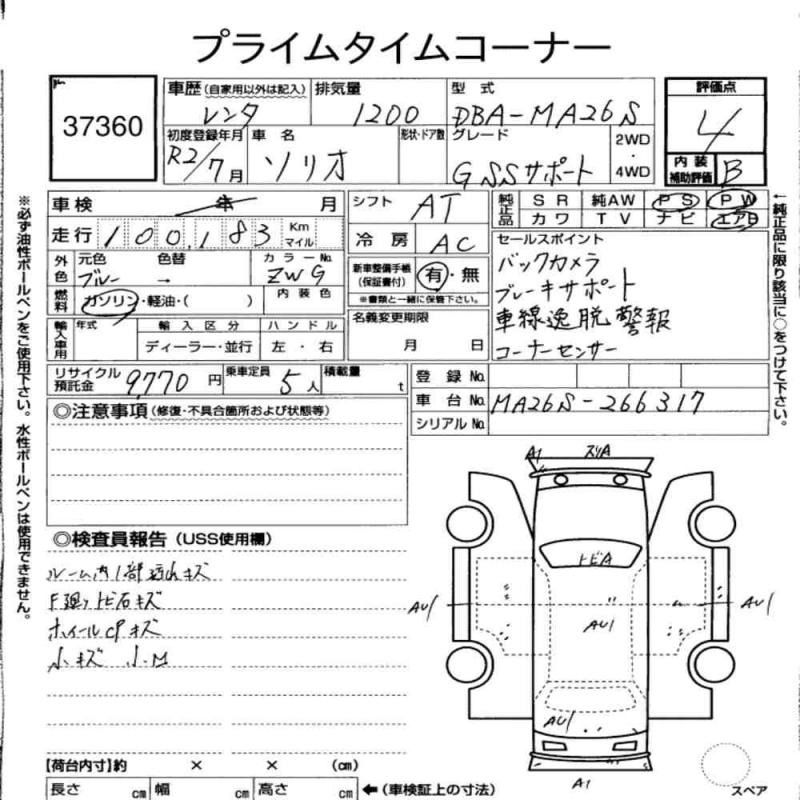 プライムタイムコーナー
37360
車歴 (自家用以外は記入) レンタ
排気量 1200
型式 DBA-MA26S
評価点 4
初度登録年月 R2/7月
車名 ソリオ
形状・ドア数
グレード G SSサポート
2WD
4WD
内装補助評価 B
車検 年 月
シフト AT
純正品 SR 純AW PS PW
カワ TV ナビ エアB
走行 100,183 Km マイル
冷房 AC
セールスポイント
バックカメラ
ブレーキサポート
車線逸脱警報
コーナーセンサー
外色 元色 ブルー 色替 → カラーNo. ZWG
新車整備手帳 (保証書付) 有・無
※書類と一緒に保管下さい。
燃料 ガソリン・軽油・( ) 内装色
名義変更期限
月 日
輸入車用 年式 輸入区分 ハンドル
ディーラー・並行 左・右
リサイクル預託金 9,770円
乗車定員 5人
積載量 t
登録No.
車台No. MA26S-266317
シリアルNo.
◎注意事項 (修復・不具合箇所および状態等)
◎検査員報告 (USS使用欄)
ルーム内1部 キズ
F廻りトビ石キズ
ホイールCPキズ
小キズ 小M
A1 スリA
トビA
AU1 AU1 AU1
AU1
A1
スペア
【荷台内寸】約 × × (cm)
長さ cm 幅 cm 高さ cm ←(車検証上の寸法)
※必ず油性ボールペンをご使用下さい。水性ボールペンは使用できません。
←純正品に限り該当に○をつけて下さい。